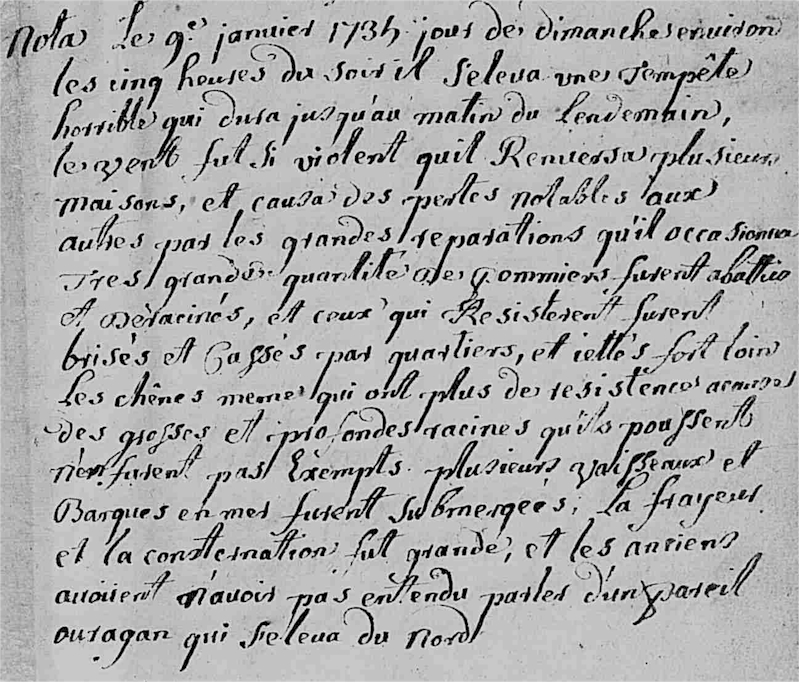 Nota Le 9e janvier 1735 jour de dimanche environ
les cinq heures du soir il s'eleva une Tempête
horrible qui dura jusqu'au matin du lendemain,
le vent fut si violent quil Renversa plusieurs
maisons, et causa des pertes notables aux
autres par les grandes reparations qu'il occasionna
Tres grande quantité de pommiers furent abattus
et Déracinés, et ceux qui Resisterent furent
brisés et Cassés par quartiers, et iettés fort loin
Les chênes meme qui ont plus de resistence acause
des grosses et profondes racines qu'ils poussent
n'en furent pas Exempts. plusieurs vaisseaux et
Barques en mer furent submergeés, La frayeur
et la consternation fut grande, et les anciens
avoient n'avoir pas entendu parler d'un pareil
ouragan qui s'eleva du Nord